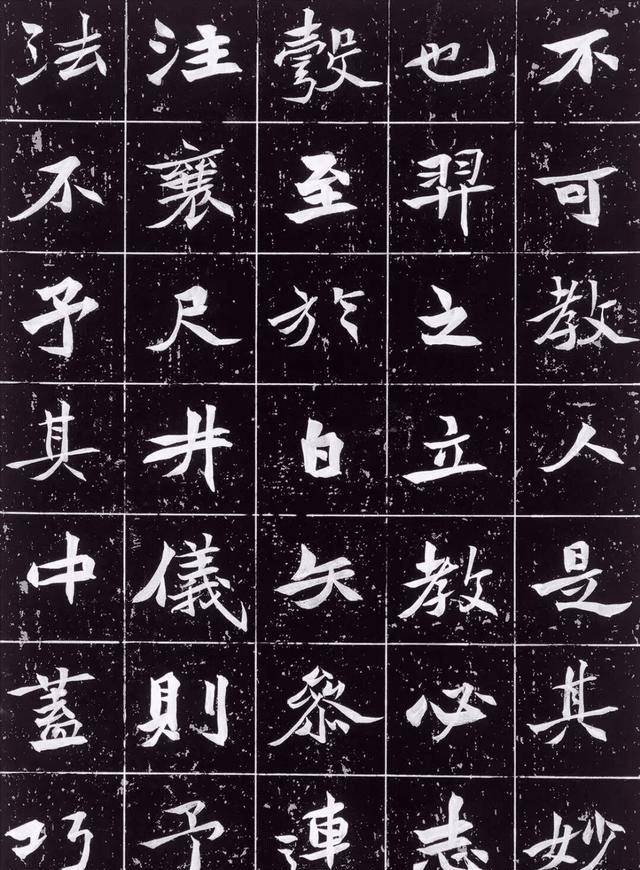 不可教人是其妙
也羿之立教必志
彀至於白矢參連
注襄尺井儀則予
法不予其中蓋巧